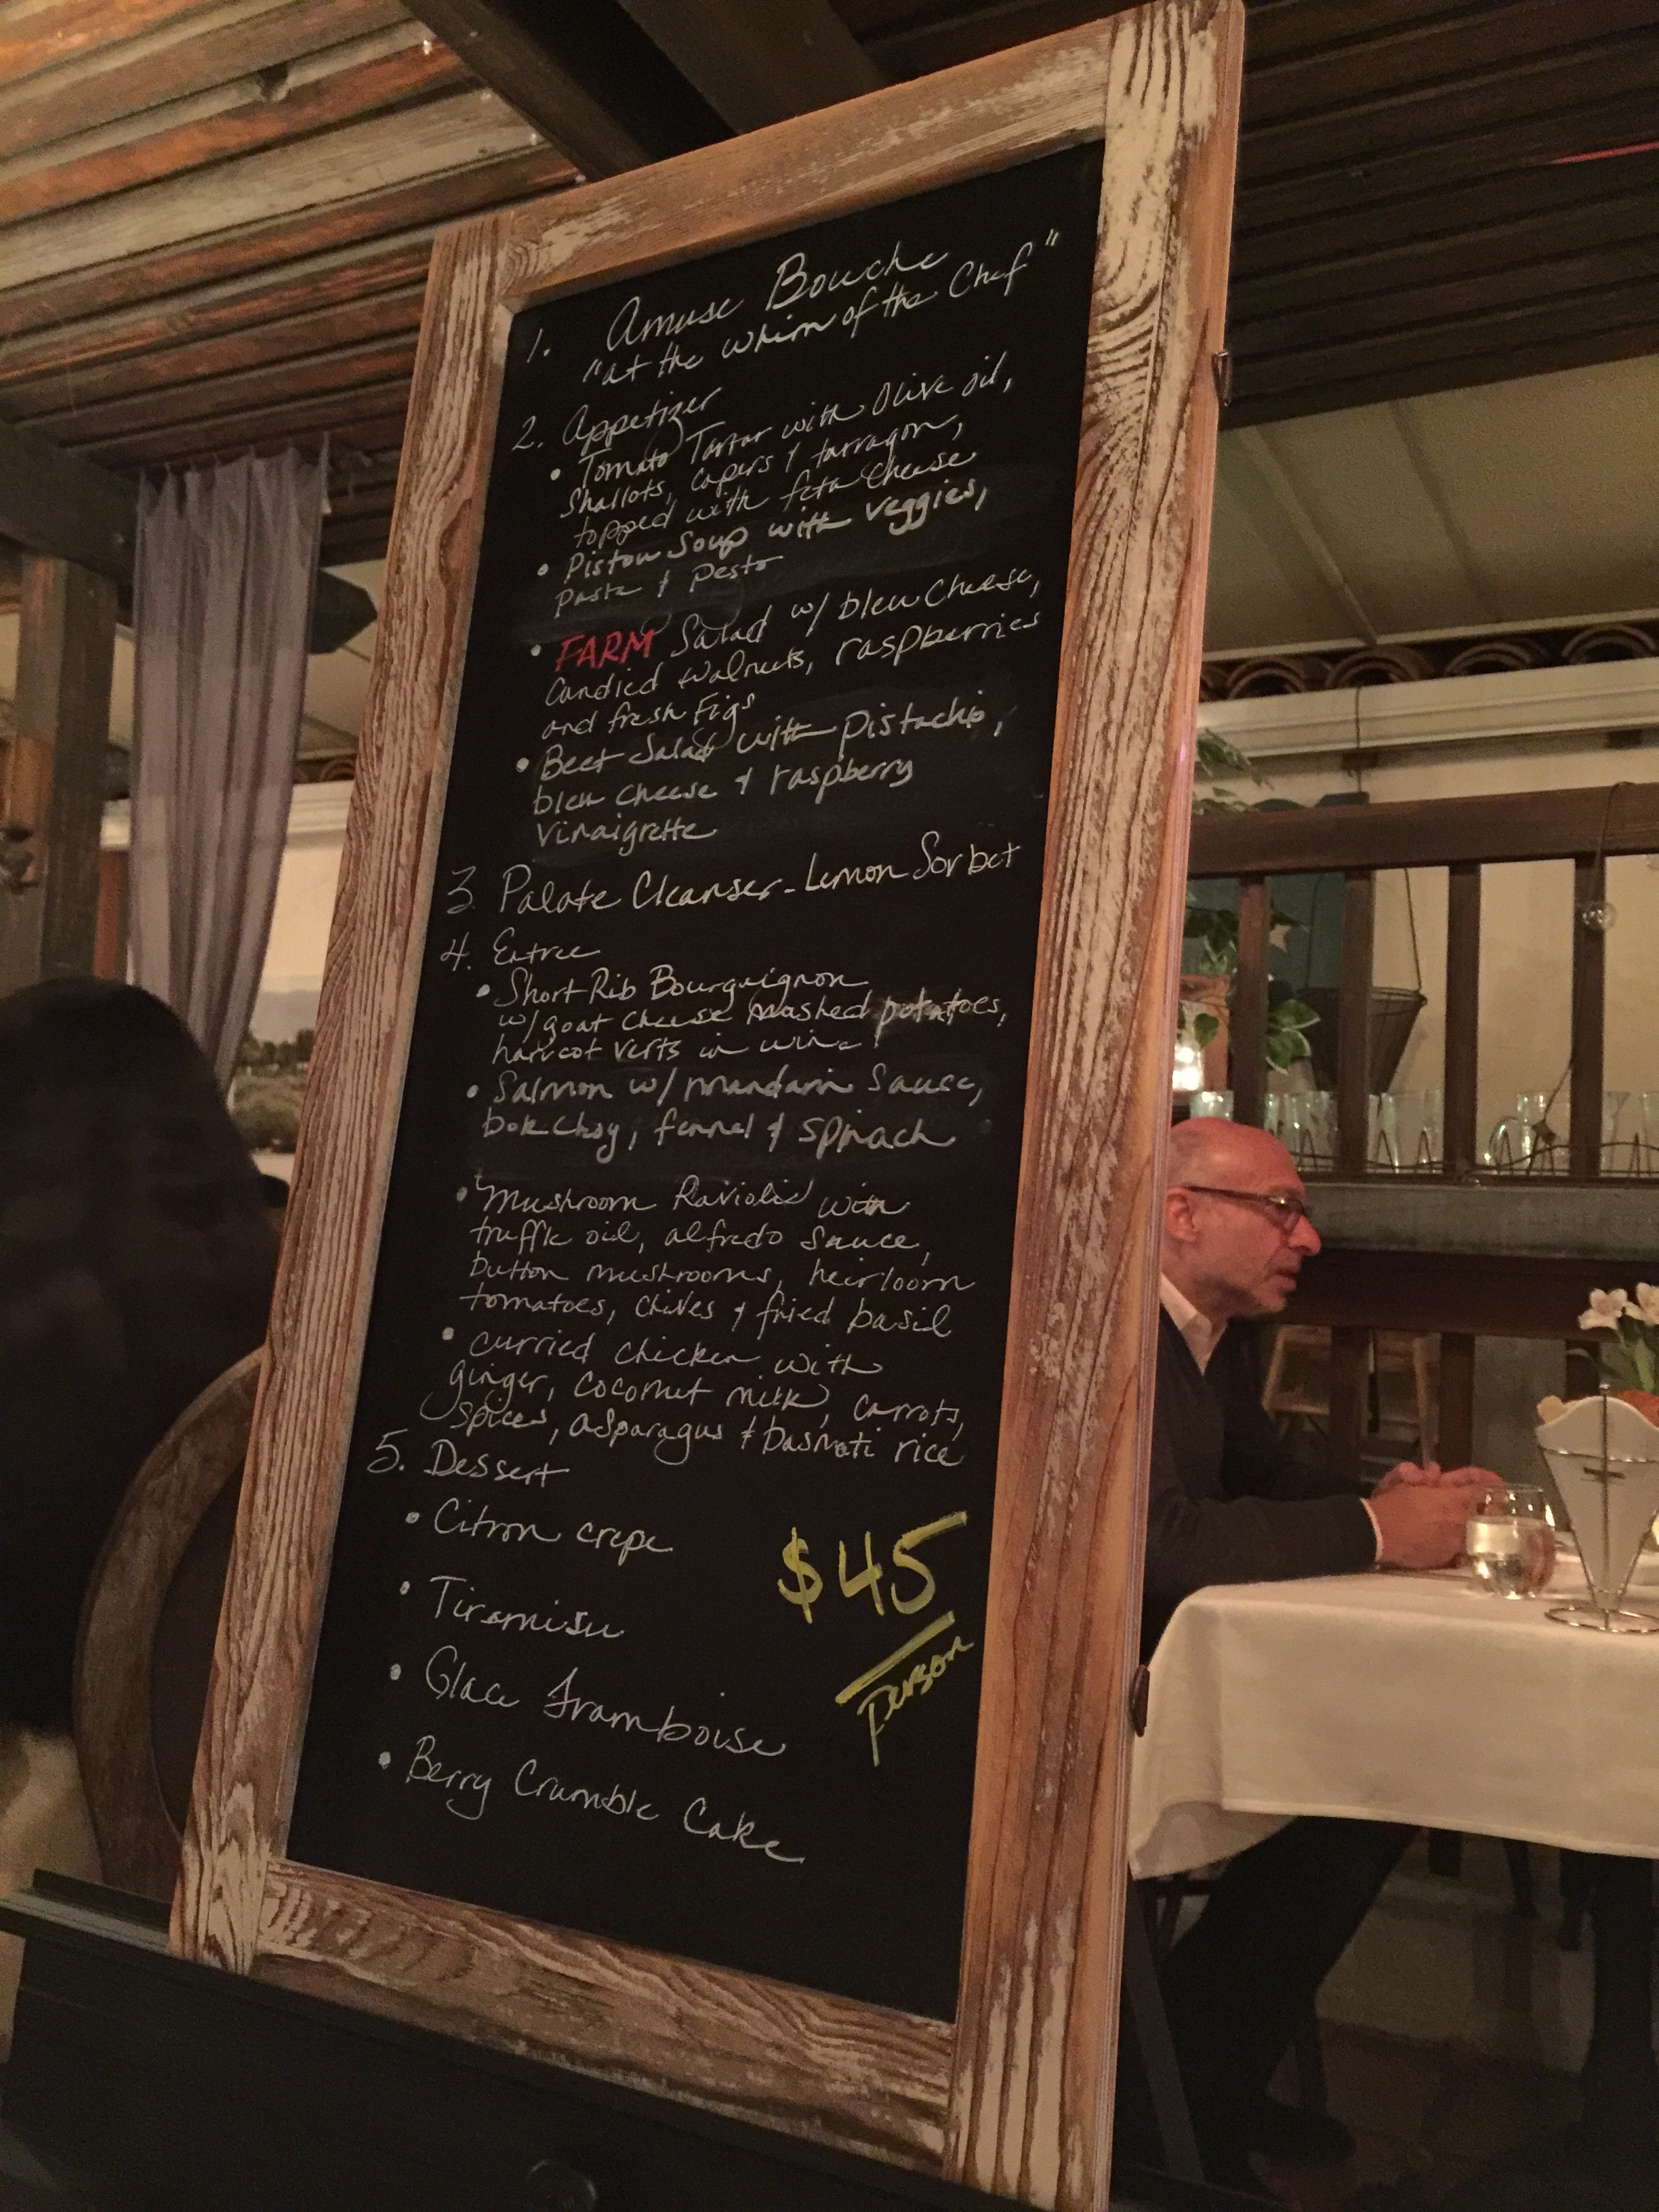 1. Amuse Bouche
"at the whim of the Chef"
2. Appetizer
• Tomato Tartar with Olive oil,
Shallots, Capers & tarragon,
topped with feta Cheese
• Pistou Soup with veggies,
pasta & Pesto
• FARM Salad w/ bleu Cheese,
Candied Walnuts, raspberries
and fresh Figs
• Beet Salad with pistachio,
bleu cheese & raspberry
Vinaigrette
3. Palate Cleanser - Lemon Sorbet
4. Entree
• Short Rib Bourguignon
w/ goat cheese mashed potatoes,
haricot verts in wine
• Salmon w/ mandarin Sauce,
bok choy, fennel & spinach
• Mushroom Raviolis with
truffle oil, alfredo Sauce,
button mushrooms, heirloom
tomatoes, chives & fried basil
• curried chicken with
ginger, coconut milk, carrots,
spices, asparagus & basmati rice
5. Dessert
• Citron crepe
• Tiramisu
• Glace Framboise
• Berry Crumble Cake
$45
person